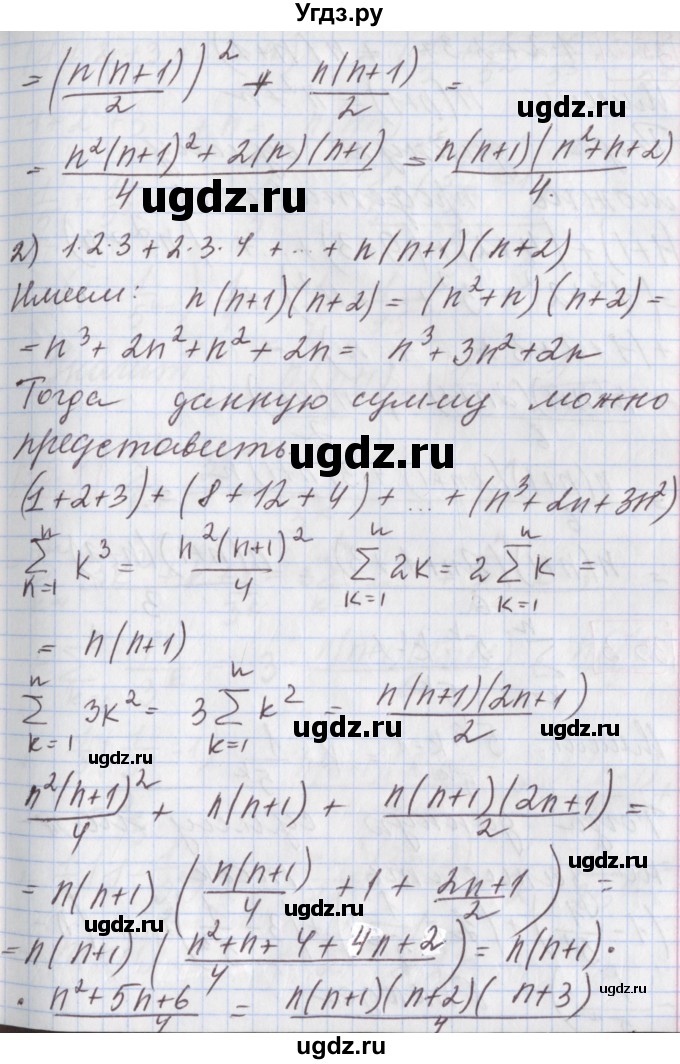 Угдз.ру
= (n(n+1)/2)² + n(n+1)/2 =
ugdz.ru
= (n²(n+1)² + 2(n)(n+1))/4 = n(n+1)(n²+n+2)/4.
ugdz.ru
2) 1·2·3 + 2·3·4 + ... + n(n+1)(n+2)
Имеем: n(n+1)(n+2) = (n²+n)(n+2) =
= n³ + 2n² + n² + 2n = n³ + 3n² + 2n
Тогда данную сумму можно
представить
ugdz.ru
(1+2+3) + (8+12+4) + ... + (n³+2n+3n²)
∑ⁿₙ₌₁ k³ = n²(n+1)²/4 ∑ⁿₖ₌₁ 2k = 2∑ⁿₖ₌₁ k =
= n(n+1)
ugdz.ru
∑ⁿₖ₌₁ 3k² = 3∑ⁿₖ₌₁ k² = n(n+1)(2n+1)/2
ugdz.ru
ugdz.ru
n²(n+1)²/4 + n(n+1) + n(n+1)(2n+1)/2 =
ugdz.ru
= n(n+1) (n(n+1)/4 + 1 + (2n+1)/2) =
ugdz.ru
ugdz.ru
= n(n+1) ((n²+n+4+4n+2)/4) = n(n+1)·
· (n²+5n+6)/4 = n(n+1)(n+2)(n+3)/4
ugdz.ru
ugdz.ru